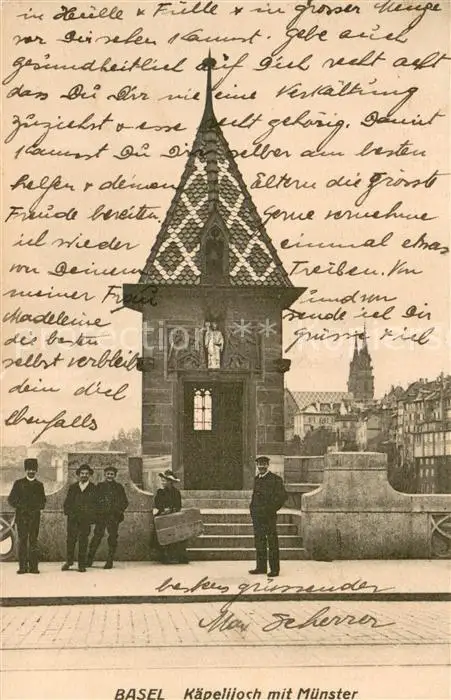 in Hülle & Fülle & in grosser Menge
vor Dir sehen kannst. Gebe auch
gesundheitlich auf Dich recht acht
dass Du Dir nie eine Verkältung
zuziehst & esse recht gehörig. Damit
kannst Du Dir selber am besten
helfen & deinen Eltern die grösste
Freude bereiten. Gerne vernehme
ich wieder einmal etwas
von Deinem Treiben. Von
meiner Frau und von
Madeleine sende ich Dir
die besten Grüsse & viel
selbst verbleib
dein dich
ebenfalls
bestens grüssender
Max Scherrer
BASEL Käpelijoch mit Münster